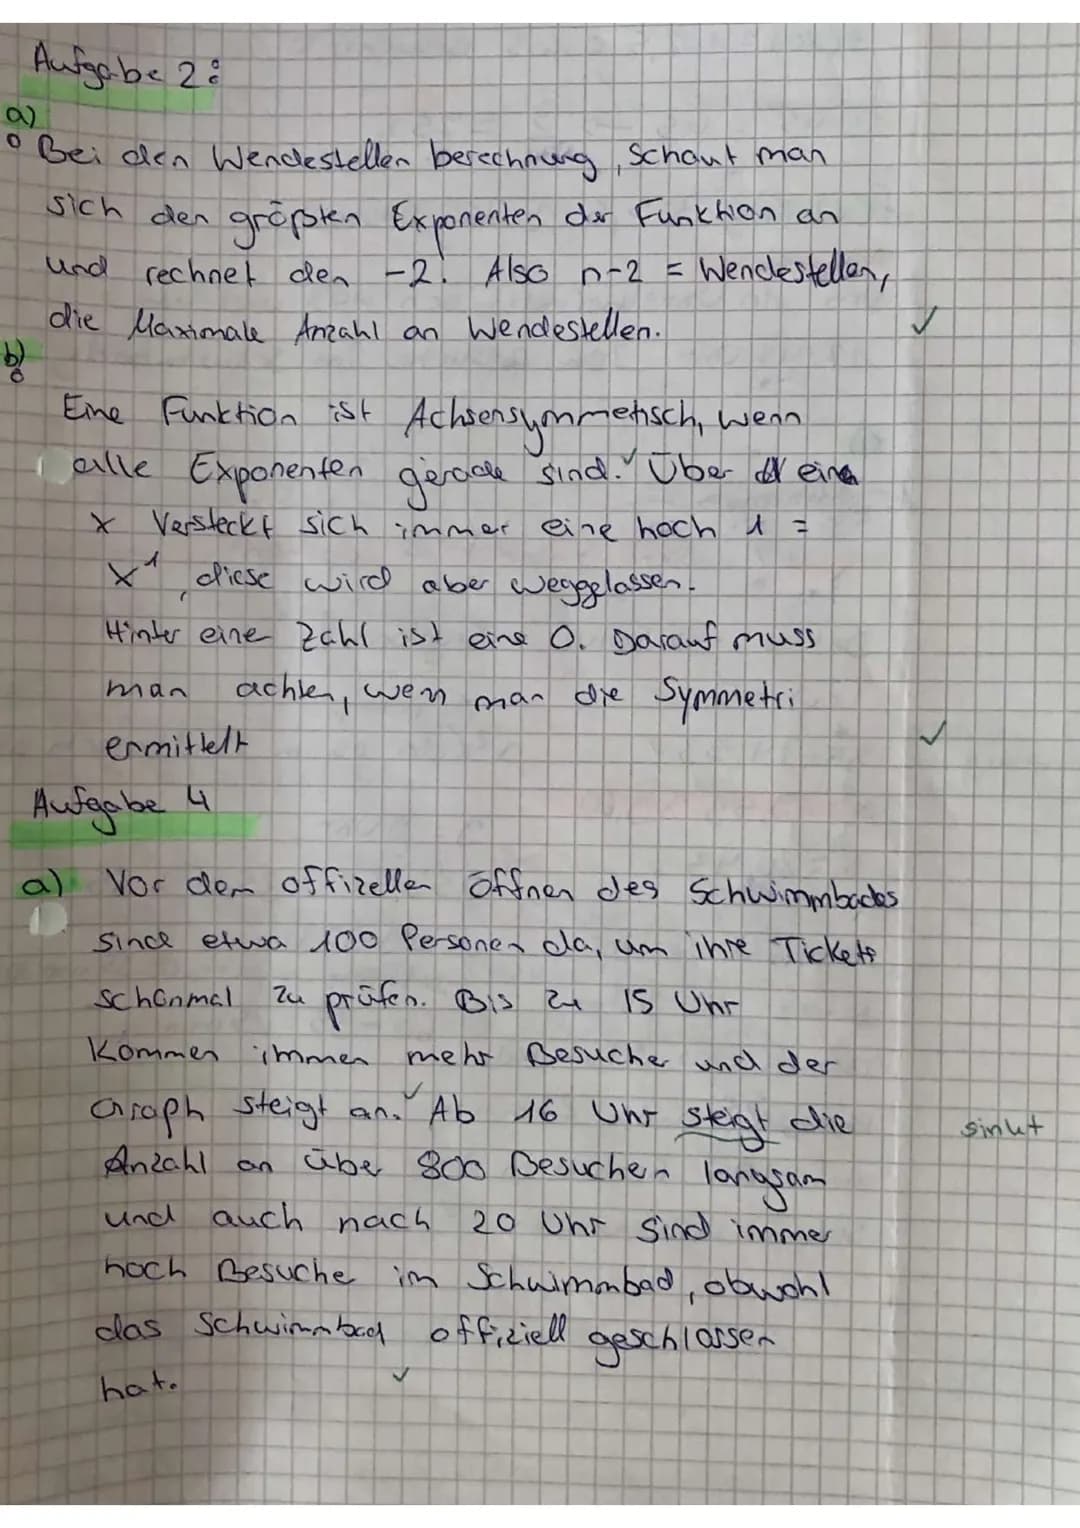 Aufgabe 2:
a)
Bei den Wendestellen berechnung, schaut man
sich den größten Exponenten der Funktion an
und rechnet den -2. Also n-2 = Wendestellen,
die Maximale Anzahl an Wendestellen. ✓
b)
Eine Funktion ist Achsensymmetisch, wenn
alle Exponenten gerade sind. ✓ Über eine
x Versteckt sich immer eine hoch 1 =
x¹, diese wird aber weggelassen.
Hinter eine Zahl ist eine 0. Darauf muss
man achten, wen man die Symmetri
ermittelt ✓
Aufgabe 4
a) Vor dem offizellen Öffnen des Schwimmbades
sind etwa 100 Personen da, um ihre Tickets
schonmal zu prüfen. Bis zu 15 Uhr
Kommen immer mehr Besuche und der
Graph steigt an. ✓ Ab 16 Uhr steigt die sinkt
Anzahl an übe 800 Besuchen langsam
und auch nach 20 Uhr sind immer
noch Besuche im Schwimmbad, obwohl
das Schwimmbad offiziell geschlossen
hat. ✓